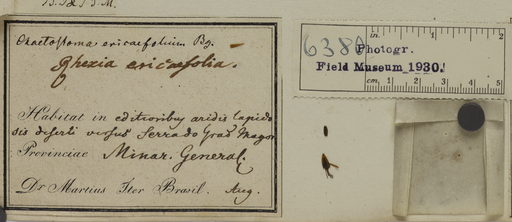 Chaetostoma ericaefolium Bg.
Rhexia ericaefolia.
Habitat in editioribus aridis lapido
sis deserti versus Serra do Grad Magor
Provinciae Minar. General.
Dr Martius Iter Brasil. Aug.
in. 1 2
6380
Photogr.
Field Museum 1930.
cm 1 2 3 4 5